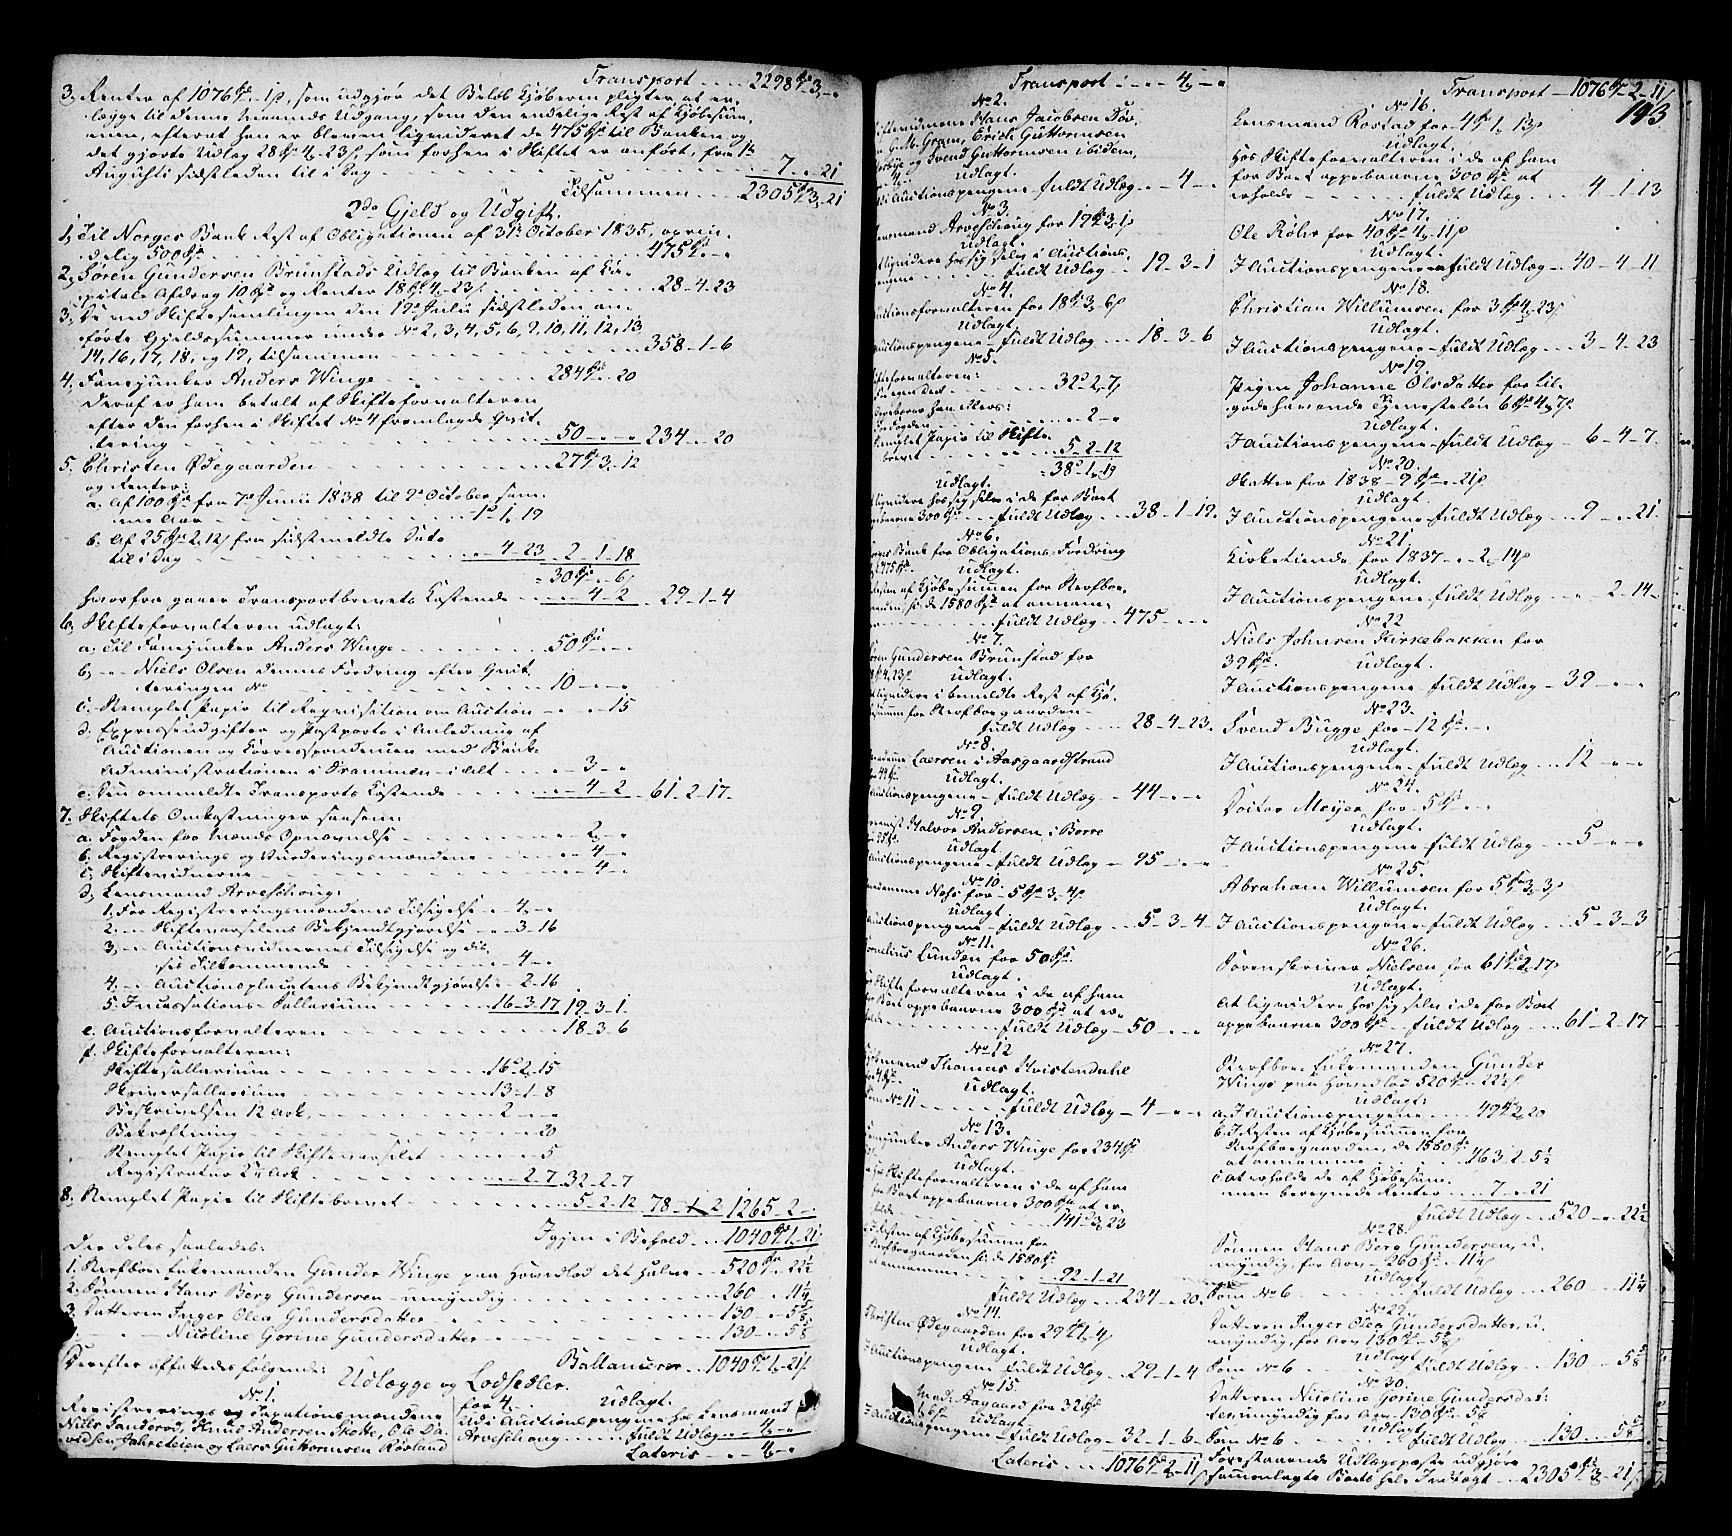 Transport . . . 2298 Spd 3 „ -
3, Renter af 1076 Spd - 1 β, som udgjør det Beløb Kjøberen pligter at er-
lægge til denne Maaneds Udgang, som den endelige Rest af Kjøbesum-
men, efterat han er bleven liqvideret de 475 Spd til Banken og
det gjorte Udlæg 28 Spd 4 „ 23 β, som forhen i Skiftet er anført, fra 1te
Augusti sidstleden til i Dag - - - 7 - „ - 21
Tilsammen - - - 2305 Spd 3 „ 21
2do Gjeld og Udgift.
1, Til Norges Bank Rest af Obligationen af 31te October 1835, oprin-
delig 500 Spd - - - 475 Spd „ -
2, Søren Gundersen Brunstads Udlæg til Banken af Ca-
pitals Afdrag 10 Spd og Renter 18 Spd 4 „ 23 β - - - 28 - 4 - 23
3, De ved Skiftesamlingen den 19de Julii sidstleden an-
førte Gjeldssummer under No 2, 3, 4, 5, 6, 9, 10, 11, 12, 13
14, 16, 17, 18, og 19, tilsammen - - - 358 - 1 - 6
4, Fanejunker Anders Winge - - - 284 Spd „ 20
Deraf er ham betalt af Skifteforvalteren
efter den forhen i Skiftet No 4 fremlagde Qvit-
tering - - - 50 - „ - „ 234 „ 20
5. Christen Ødegaarden - - - 27 Spd 3 „ 12
og Renter:
a. Af 100 Spd fra 7de Junii 1838 til 9de October sam-
me Aar - - - 1 - 1 „ 19
b. Af 25 Spd 2 „ 12 β fra sidstmeldte Dato
til i Dag - - - „ - 4 - 23 „ 2 - 1 - 18
30 Spd „ 6
hvorfra gaaer Transportbrevets Kostende - - - „ - 4 - 2 . 29 - 1 - 4
6, Skifteforvalteren udlagt:
a. Til Fanejunker Anders Winge - - - 50 Spd „ -
b, - „ - Niels Olsen dennes Fordring efter Qvit-
teringen No - - - 10 - „ - „
c. Stemplet Papir til Reqvisition om Auction - „ - „ - 15
d. Expressudgifter og Postporto i Anledning af
Auctionen og Correspondencen med Bank-
Administrationen i Drammen - i alt - - - „ - 3 - „
e. Den ommeldte Transports Kostende - - - „ - 4 - 2 61 - 2 - 17.
7. Skiftets Omkostninger saasom:
a. Fogden for Mænds Opnævnelse - - - „ - 2 „ -
b. Registrerings og Vurderingsmændene - - - „ - 4 - „
c. Skiftevidnerne - - - „ - 4 - „
d. Lensmand Arveschoug:
1. For Registreringsmændenes Tilsigelse - „ - 4 „ -
2. - „ - Skiftevarselens Bekjendtgjørelse - „ - 3 - 16
3, - „ - Auctionsvidnernes Tilsigelse og dis-
ses Tilkommende - - - „ - 4 - „
4. - „ - Auctionsplacatens Bekjendtgjørelse - „ - 2 - 16
5. Incassations-Sallarium - - - 16 - 3 - 17 19 - 3 - 1
e. Auctionsforvalteren - - - 18 - 3 - 6
f. Skifteforvalteren:
Skiftesallarium - - - 16 - 2 - 15
Skriversallarium - - - 13 - 1 - 8
Beskrivelsen 12 Ark. - - - 2 - „ - „
Bekræftning - - - „ - „ - 20
Stemplet Papir til Skiftevarselet - - - „ - „ - 5
- - - 2 - 7 32 - 2 - 7
8. Stemplet Papir til Skiftebrevet - - - 5 - 2 - 12 78 - 1 - 2 1265 - 2 - „
Igjen i Behold - - - 1040 Spd 1 - 21
Der deles saaledes:
1. Sterfboe Enkemanden Gunder Winge paa Horvelod det halve - 520 Spd „ 22½
2. Sønnen Hans Berg Gundersen - umyndig - - - 260 „ 11¼
3. Datteren Inger Olea Gundersdatter - - - 130 - „ - 5⅝
- „ - Nicoline Gorine Gundersdatter - - - 130 - „ - 5⅝
Ballancerer - - - 1040 Spd 1 „ 21 β
Derefter affattedes følgende:
Udlægge og Lodsedler.
No 1.
Registrerings og Taxationsmændene
Niels Sanderød, Knud Andersen Skotte, Ole Da-
vidsen Jahreteien og Laers Guttormsen Rørland
for 4 „ - Udlagt.
Udi Auctionspengene hos Lensmand
Arveschoug - - - fuldt Udlæg - „ - 4 „ -
Lateris - - „ - 4 - „
Transport - - „ - 4 „ - „
No 2.
Skiftevidnerne Hans Jacobsen Døv,
Gram, Erich Guttormsen
og Svend Guttormsen ibidem,
Udlagt.
I Auctionspengene fuldt Udlæg - „ - 4 - „
No 3.
Lensmand Arveschoug for 19 Spd 3 „ 1 β
Udlagt.
At liqvidere hos sig selv i Auctions-
pengene fuldt Udlæg - - 19 - 3 - 1
No 4.
Auctionsforvalteren for 18 Spd 3 „ 6 β
Udlagt.
I Auctionspengene - fuldt Udlæg - - - 18 - 3 - 6
No 5.
Skifteforvalteren:
- - - 32 - 2 „ 7
- - - „ - 2 - „
Stemplet Papir til Skifte-
brevet - - - 5 - 2 - 12
38 - 1 „ 19
Udlagt.
At liqvidere hos sig selv i de for Boet
oppebaarne 300 Spd - - fuldt Udlæg - - - 38 - 1 - 19.
No 6.
Norges Bank for Obligations-Fordring
475 Spd Udlagt.
I Resten af Kjøbesummen for Sterfboe-
gaarden, de 1580 Spd at annam-
me - - - fuldt Udlæg - - 475 - „ - „
No 7.
Søren Gundersen Brunstad for
28 Spd 4 „ 23 β Udlagt.
At liqvidere i bemeldte Rest af Kjø-
besummen for Sterfboegaarden -
fuldt Udlæg - - - 28 - 4 - 23.
No 8.
Madame Laersen i Aasgaardstrand
for 44 Spd Udlagt.
I Auctionspengene - fuldt Udlæg - - 44 - „ - „
No 9.
Halvor Andersen i Borre
for 95 Spd Udlagt.
I Auctionspengene - fuldt Udlæg - - 95 - „ - „
No 10.
Madamme for 5 Spd 3 „ 4 β
Udlagt
I Auctionspengene - fuldt Udlæg - - 5 - 3 - 4
No 11.
Cornelius Lunden for 50 Spd
Udlagt.
Hos Skifteforvalteren i de af ham
for Boet oppebaarne 300 Spd at er-
holde - - - fuldt Udlæg - 50 - „ - „
No 12
Thomas Christendahl
for 4 Spd Udlagt.
Som No 11 - - - fuldt Udlæg - 4 - „ - „
No 13.
Fanejunker Anders Winge for 234 Spd
Udlagt.
a. Hos Skifteforvalteren i de af ham
for Boet oppebaarne 300 Spd at er-
holde - - - 141 - 3 „ 23
b. I Resten af Kjøbesummen for
Sterfboegaarden, de 1580 Spd
at annamme - - - 92 - 1 - 21
fuldt Udlæg - - - 234 - „ 20.
No 14.
Christen Ødegaarden for 29 Spd 1 „ 4 β
Udlagt.
I Auctionspengene - fuldt Udlæg - - 29 - 1 - 4
No 15.
Mad: Aagaard for 32 Spd
1 „ 6 β Udlagt
I Auctionspengene - fuldt Udlæg - 32 - 1 - 6 -
Lateris - - - 1076 Spd 2 „ 11 β
193
Transport - 1076 Spd - 2 - 11 β
No 16.
Lensmand Rostad for 4 Spd 1 „ 13 β
Udlagt.
Hos Skifteforvalteren i de af ham
for Boet oppebaarne 300 Spd at
erholde - - - fuldt Udlæg - - - 4 - 1 - 13
No 17.
Ole Röhr for 40 Spd 4 „ 11 β
Udlagt.
I Auctionspengene - fuldt Udlæg - - 40 - 4 - 11
No 18.
Christian Willumsen for 3 Spd 4 „ 23 β
Udlagt.
I Auctionspengene - fuldt Udlæg - - - 3 - 4 - 23
No 19.
Pigen Johanne Olsdatter for til-
godehavende Tjenesteløn 6 Spd 4 „ 7 β
Udlagt.
I Auctionspengene - fuldt Udlæg - - 6 - 4 - 7.
No 20.
Skatter for 1838 - 9 Spd „ 21 β
Udlagt.
I Auctionspengene - fuldt Udlæg - - - 9 - „ - 21.
No 21.
Kirketiende for 1837 - „ - 2 - 14 β
Udlagt.
I Auctionspengene - fuldt Udlæg - - - „ - 2 - 14 -
No 22
Niels Johnsen Kirkebakken for
39 Spd. Udlagt.
I Auctionspengene - fuldt Udlæg - 39 - „ - „
No 23.
Svend Bugge for 12 Spd „ -
Udlagt.
I Auctionspengene - fuldt Udlæg - - 12 - „ - „
No 24.
Doctor Meyer for 5 Spd „ -
Udlagt.
I Auctionspengene - fuldt Udlæg - - - 5 - „ - „
No 25.
Abraham Willumsen for 5 Spd 3 „ 3 β
Udlagt.
I Auctionspengene - fuldt Udlæg - - 5 - 3 - 3
No 26.
Sorenskriver Nielsen for 61 Spd 2 „ 17 β
Udlagt.
At liqvidere hos sig selv i de for Boet
oppebaarne 300 Spd - fuldt Udlæg - - - 61 - 2 - 17
No 27.
Sterfboe Enkemanden Gunder
Winge paa Horvelod 520 Spd „ 22½ β
Udlagt:
a. I Auctionspengene - - - 49 Spd 2 „ 20
b. I Resten af Kjøbesummen for
Sterfboegaarden, de 1580 Spd
at annamme - - - 463 - 2 - 5½
c. at erholde de af Kjøbesum-
men beregnede Renter - - - 7 - „ - 21
fuldt Udlæg - - - 520 - „ 22½
No 28.
Sønnen Hans Berg Gundersen, u-
myndig, for Arv - 260 Spd „ 11¼ β
Udlagt
Som No 6 - - - fuldt Udlæg - - - 260 - „ 11¼
No 29.
Datteren Inger Olea Gundersdatter, u-
myndig, for Arv 130 Spd „ 5⅝ β
Udlagt
Som No 6 - - - fuldt Udlæg - - - 130 - „ 5⅝
No 30
Datteren Nicoline Gorine Gundersdat-
ter, umyndig for Arv 130 Spd „ 5⅝
Udlagt
Som No 6 - - - fuldt Udlæg - - - 130 - „ 5⅝
Forestaaende Udlægsposter udgjøre
sammenlagte Boets hele Indtægt - - 2305 Spd 3 „ 21 β